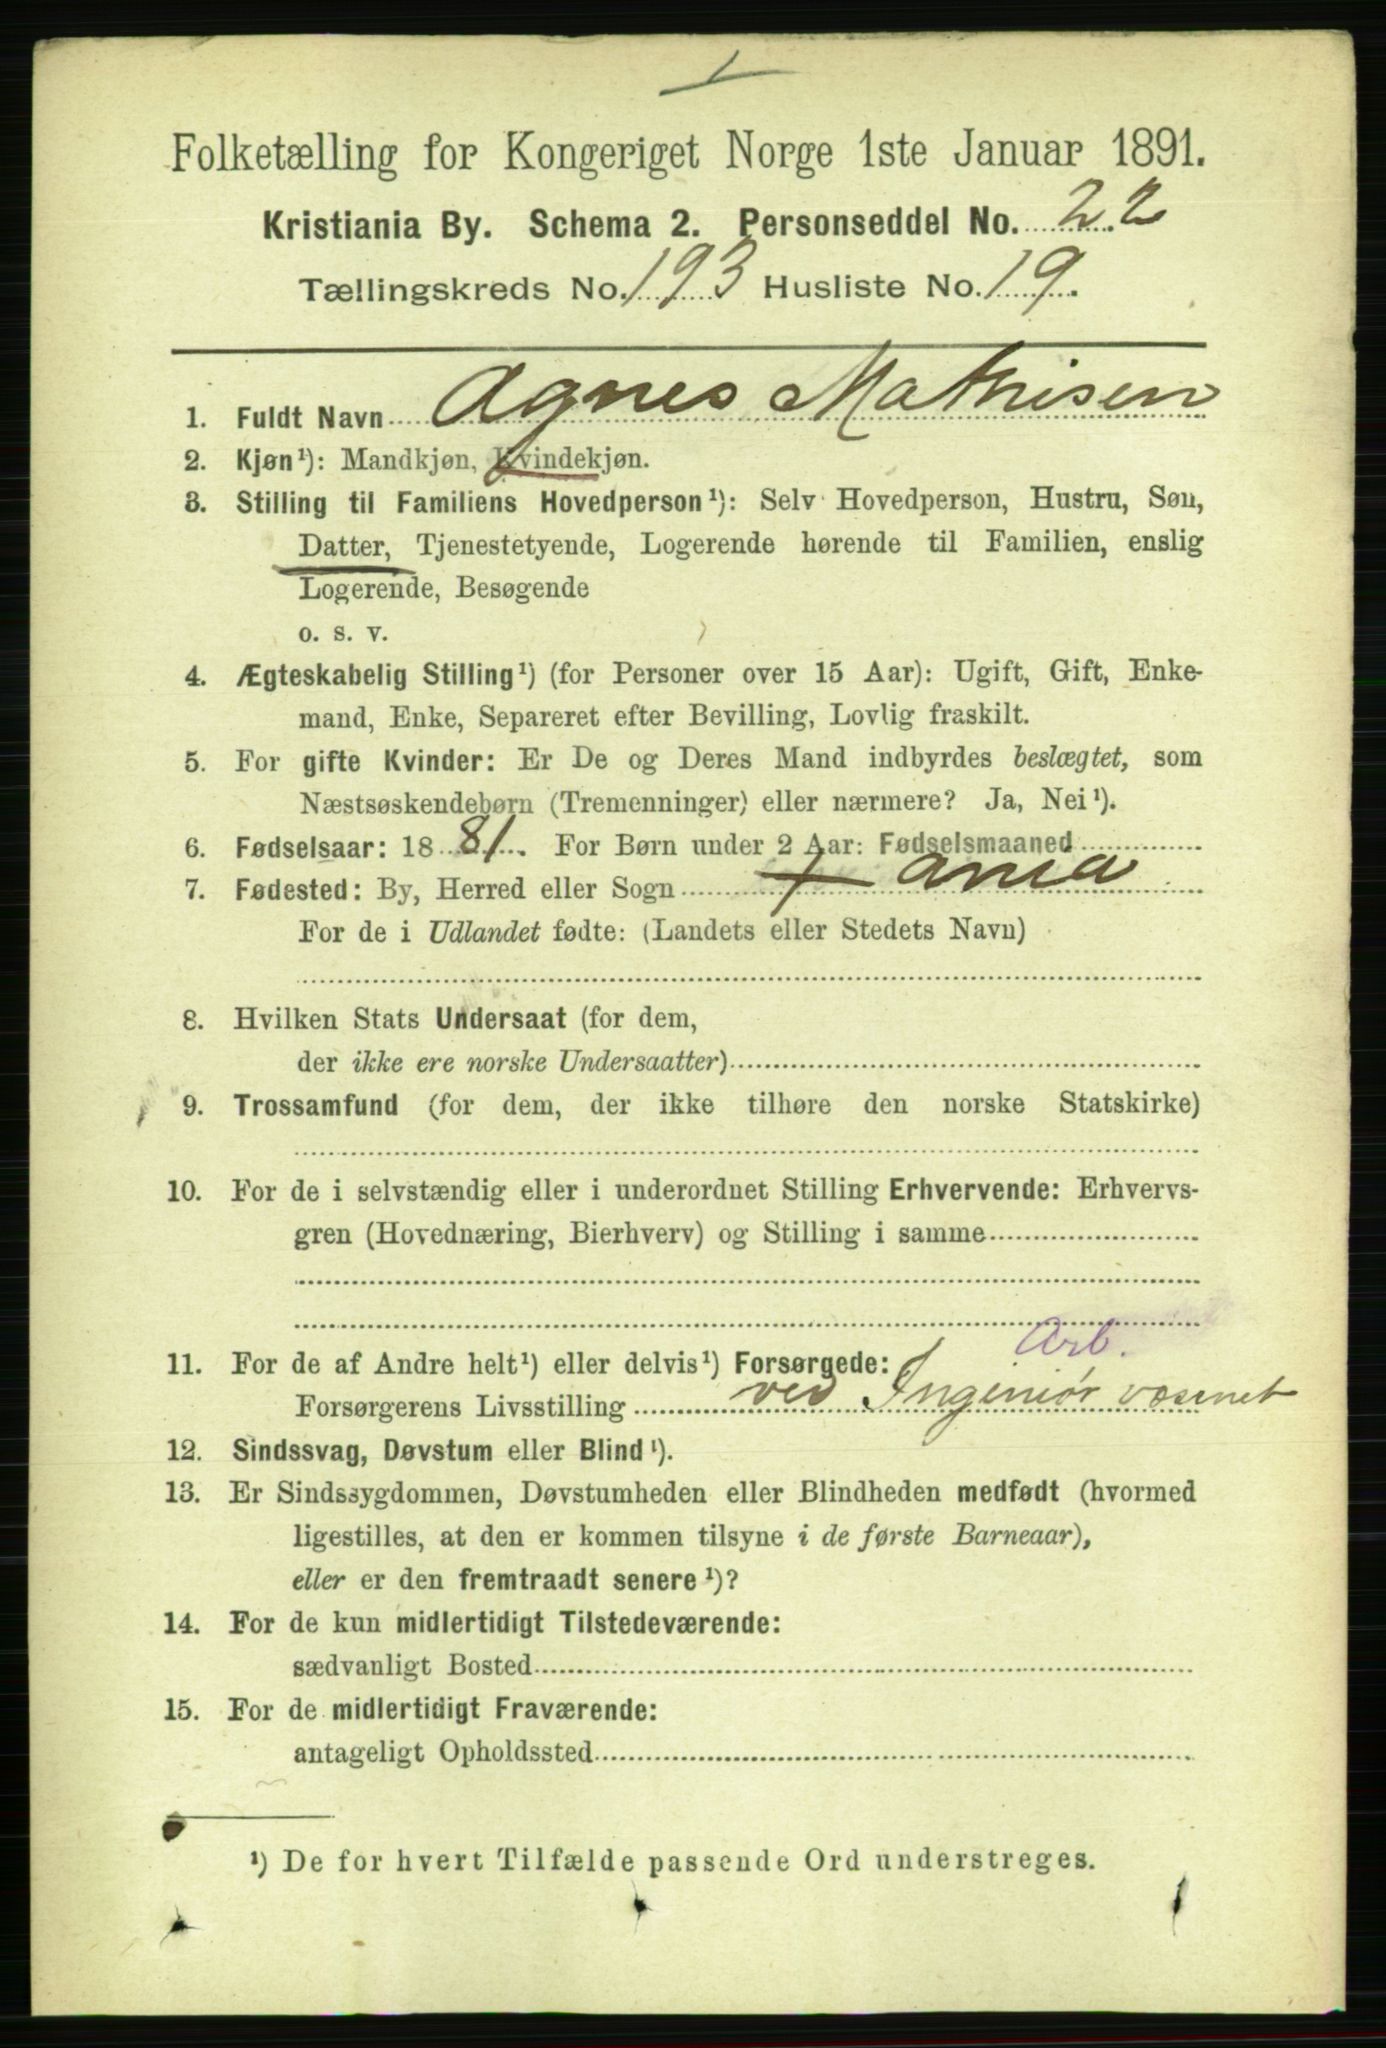 Folketælling for Kongeriget Norge 1ste Januar 1891.
Kristiania By. Schema 2. Personseddel No. 22
Tællingskreds No. 193 Husliste No. 19.
1. Fuldt Navn Agnes Mathisen
2. Kjøn¹): Mandkjøn, Kvindekjøn.
3. Stilling til Familiens Hovedperson¹): Selv Hovedperson, Hustru, Søn,
Datter, Tjenestetyende, Logerende hørende til Familien, enslig
Logerende, Besøgende
o. s. v.
4. Ægteskabelig Stilling¹) (for Personer over 15 Aar): Ugift, Gift, Enke-
mand, Enke, Separeret efter Bevilling, Lovlig fraskilt.
5. For gifte Kvinder: Er De og Deres Mand indbyrdes beslægtet, som
Næstsøskendebørn (Tremenninger) eller nærmere? Ja, Nei¹).
6. Fødselsaar: 1881. For Børn under 2 Aar: Fødselsmaaned
7. Fødested: By, Herred eller Sogn + ania
For de i Udlandet fødte: (Landets eller Stedets Navn)
8. Hvilken Stats Undersaat (for dem,
der ikke ere norske Undersaatter)
9. Trossamfund (for dem, der ikke tilhøre den norske Statskirke)
10. For de i selvstændig eller i underordnet Stilling Erhvervende: Erhvervs-
gren (Hovednæring, Bierhverv) og Stilling i samme
Arb.
11. For de af Andre helt¹) eller delvis¹) Forsørgede:
Forsørgerens Livsstilling ved Ingeniør væsenet
12. Sindssvag, Døvstum eller Blind¹).
13. Er Sindssygdommen, Døvstumheden eller Blindheden medfødt (hvormed
ligestilles, at den er kommen tilsyne i de første Barneaar),
eller er den fremtraadt senere¹)?
14. For de kun midlertidigt Tilstedeværende:
sædvanligt Bosted
15. For de midlertidigt Fraværende:
antageligt Opholdssted
¹) De for hvert Tilfælde passende Ord understreges.